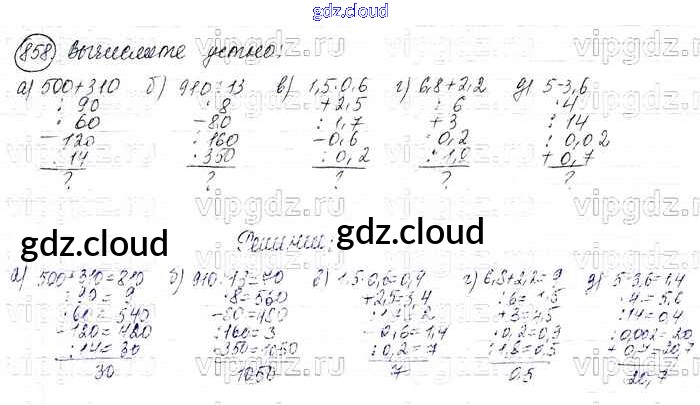 gdz.cloud
858) Вычислите устно:
а) 500+310 б) 910:13 в) 1,5·0,6 г) 6,8+2,2 д) 5-3,6
: 90 ·8 +2,5 : 6 ·4
· 60 -80 : 1,7 +3 : 14
-120 : 160 -0,6 : 0,2 : 0,02
: 14 · 350 : 0,2 : 1,8 + 0,7
? ? ? ? ?
gdz.cloud Решение: gdz.cloud
а) 500+310=810 б) 910:13=70 в) 1,5·0,6=0,9 г) 6,8+2,2=9 д) 5-3,6=1,4
: 90 = 9 ·8=560 +2,5=3,4 : 6= 1,5 ·4=5,6
· 60 = 540 -80=480 +3=4,5 : 14=0,4
-120=420 : 160=3 -0,6=1,4 : 0,002=20
: 14= 30 350=1050 : 0,2=7 : 1,8=0,5 + 0,7=20,7
30 1050 7 0,5 20,7